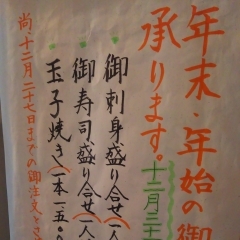 年末・年始の御
承ります。十二月三十
御刺身盛り合せ一人
御寿司盛り合せ一人
玉子焼き一本一、五〇
尚、十二月二十七日までの御注文をさ